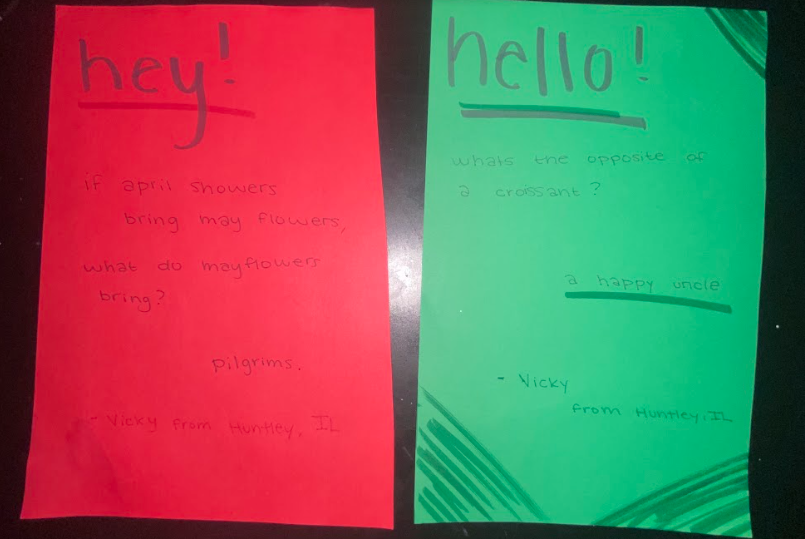 hey!
if april showers
bring may flowers,
what do mayflowers
bring?
pilgrims.
- Vicky from Huntley, IL
hello!
whats the opposite of
a croissant?
a happy uncle
- Vicky
from Huntley, IL